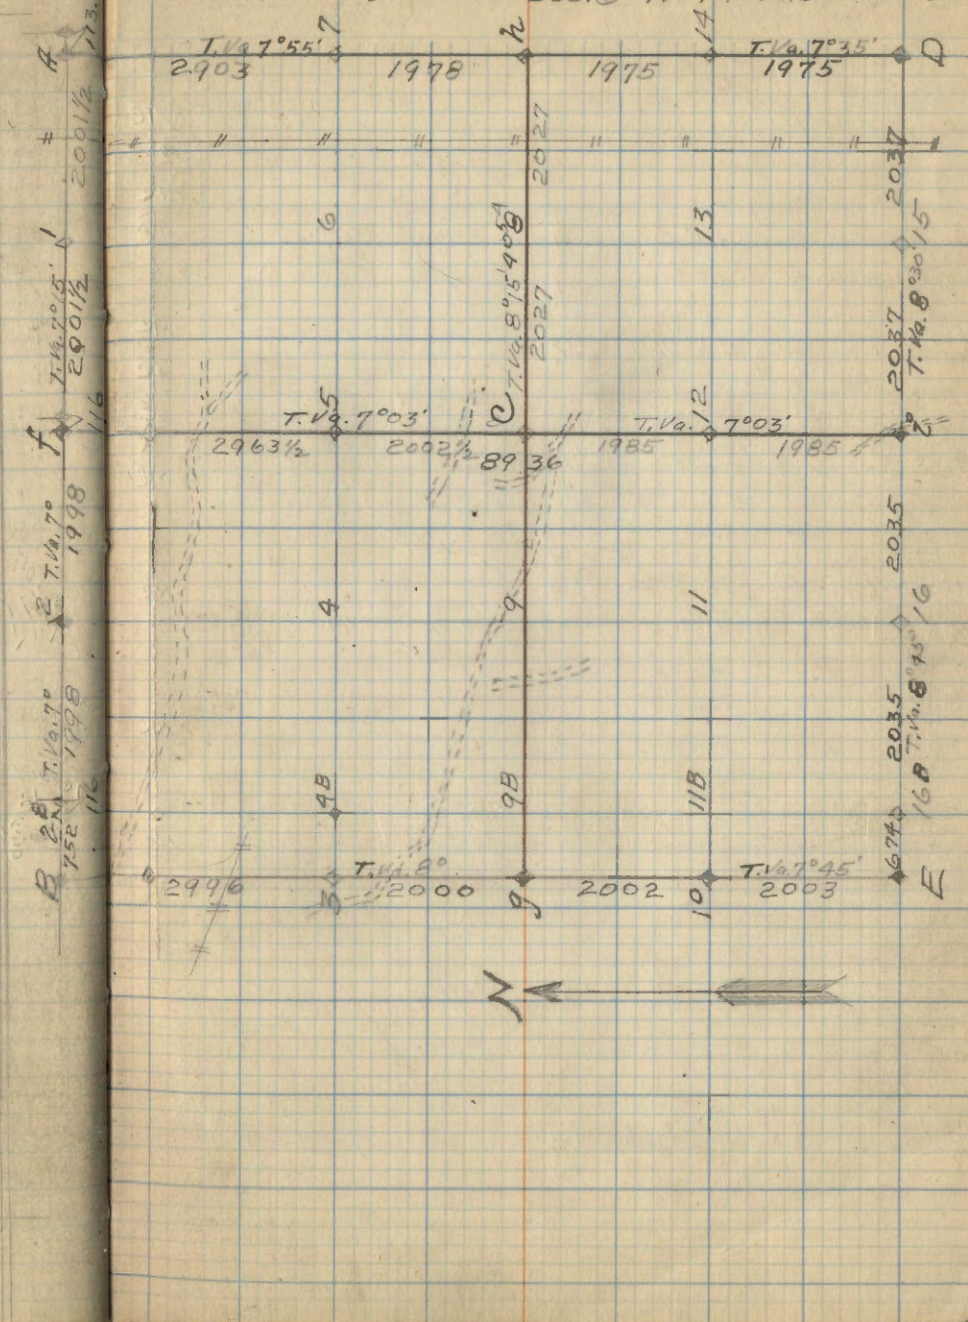 A
T.Va. 7°55'
7
h
14
T.Va. 7°35'
D
2903
1978
1975
1975
2001½
2027
2037
1
6
8
13
15
T.Va. 7°15'
2001½
T.Va. 8°15'
2027
2037
T.Va. 8°30'
116
f
T.Va. 7°03'
5
C
T.Va. 7°03'
12
2963½
2002½
89 36
1985
1985
T.Va. 7°
1998
2035
2
4
9
11
16
T.Va. 7°
1998
2035
T.Va. 8°45'
116
2B
4B
9B
11B
16B
752
674
B
3
T.Va. 8°
g
10
T.Va. 7°45'
E
2996
2000
2002
2003
N